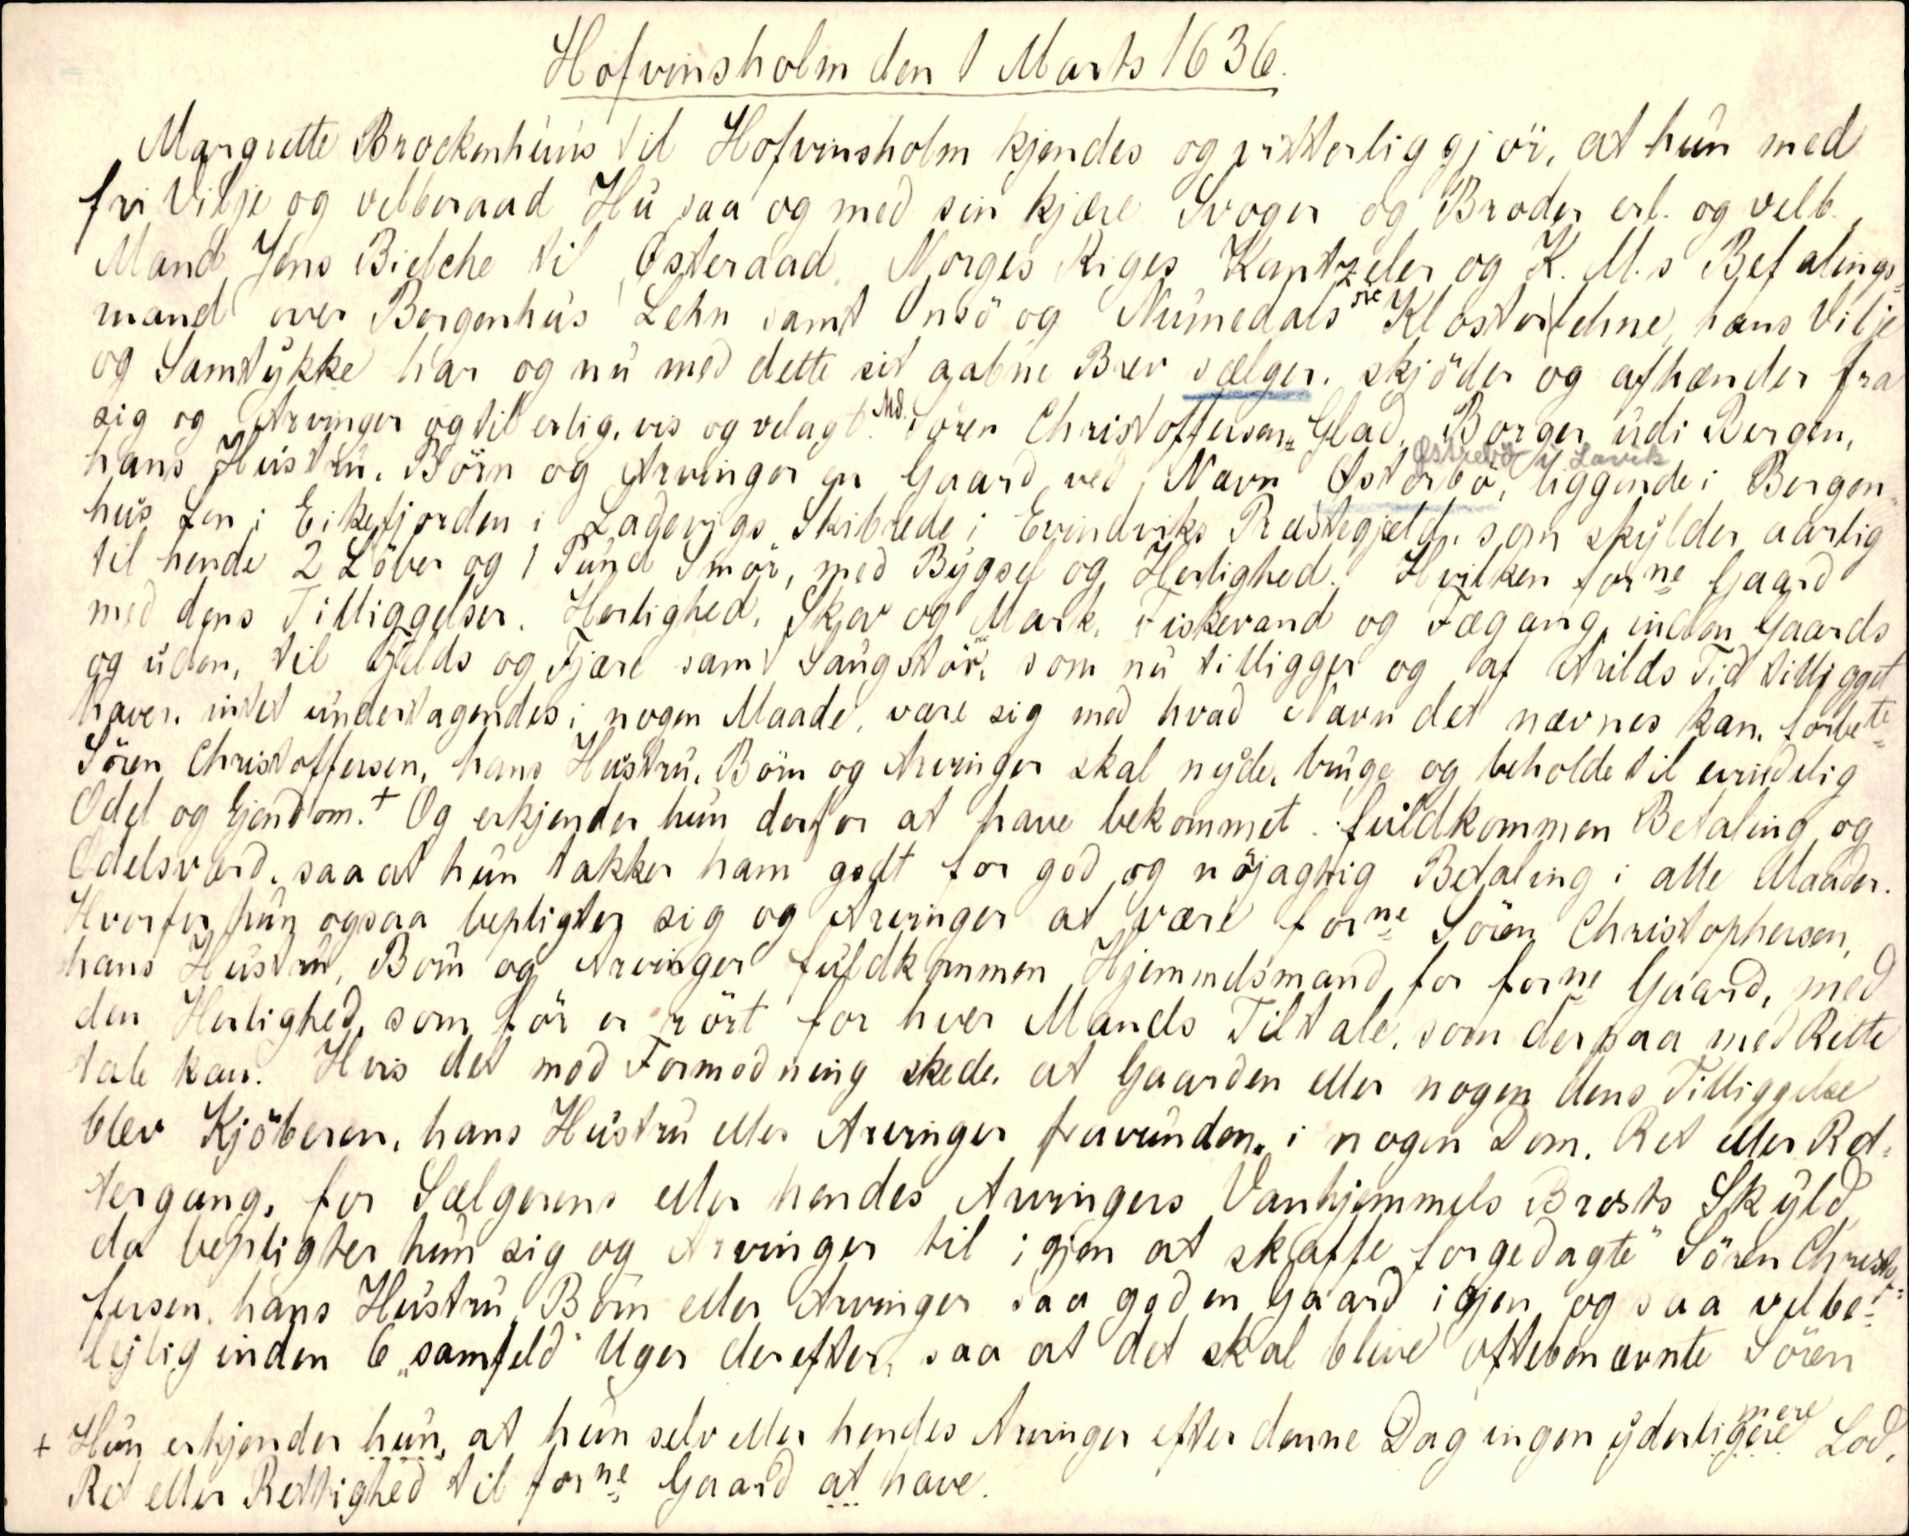 Hofvinsholm den 1 Marts 1636.
Margrette Brockenhuus til Hofvinsholm kjendes og vitterliggjör, at hun med
fri Vilje og velberaad Hu saa og med sin kjære Svoger og Broder erl. og velb.
Mand Jens Bielche til Østeraad, Norges Riges Kantzeler og K. M.s Befalings-
mand over Bergenhus Lehn samt Onsö og Numedals Klosterlehne, hans Vilje
og Samtykke har og nu med dette sit aabne Brev sælger, skjöder og afhænder fra
sig og Arvinger og til erlig, vis og velagt. Md. Sören Christoffersen Glad, Borger udi Bergen,
hans Hustru, Börn og Arvinger en Gaard ved Navn Østerbö, liggende i Bergen-
Østrebö i Lavik
hus Len i Eikefjorden i Ladevigs Skibrede i Evindviks Præstegjeld, som skylder aarlig
til hende 2 Löber og 1 Pund Smör, med Bygsel og Herlighed. Hvilken forne Gaard
med dens Tilliggelser, Herlighed, Skov og Mark, Fiskevand og Fægang, inden Gaards
og uden, til Fjelds og Fjære samt Laugstör, som nu tilligger og af Arilds Tid tilligget
haver, intet undertagendes i nogen Maade, være sig med hvad Navn det nævnes kan, forbete
Sören Christoffersen, hans Hustru, Börn og Arvinger skal nyde, bruge og beholde til evindelig
Odel og Ejendom.+ Og erkjender hun derfor at have bekommet fuldkommen Betaling og
Odelsværd, saa at hun takker ham godt for god og nöjagtig Betaling i alle Maader.
Hvorfor hun ogsaa bepligter sig og Arvinger at være forne Sören Christophersen,
hans Hustru, Börn og Arvinger fuldkommen Hjemmelsmand for forne Gaard, med
den Herlighed, som för er rört for hver Mands Tiltale, som derpaa med Rette
tale kan. Hvis det mod Formodning skede, at Gaarden eller nogen dens Tilliggelse
blev Kjöberen, hans Hustru eller Arvinger fravunden, i nogen Dom, Ret eller Ret-
tergang, for Sælgerens eller hendes Arvingers Vanhjemmels Brösts Skyld,
da bepligter hun sig og Arvinger til igjen at skaffe forgedagte" Sören Christo-
fersen, hans Hustru, Börn eller Arvinger saa god en Gaard igjen og saa velbe-
lejlig inden 6 "samfeld" Uger derefter, saa at det skal blive oftebenævnte Sören
+ Hun erkjender hun, at hun selv eller hendes Arvinger efter denne Dag ingen yderligere mere Lod,
Ret eller Rettighed til forne Gaard at have.